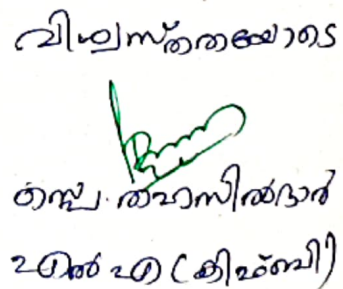 വിശ്വസ്തതയോടെ
സ്പെ. തഹസിൽദാർ
എൽ എ (കിഫ്ബി)